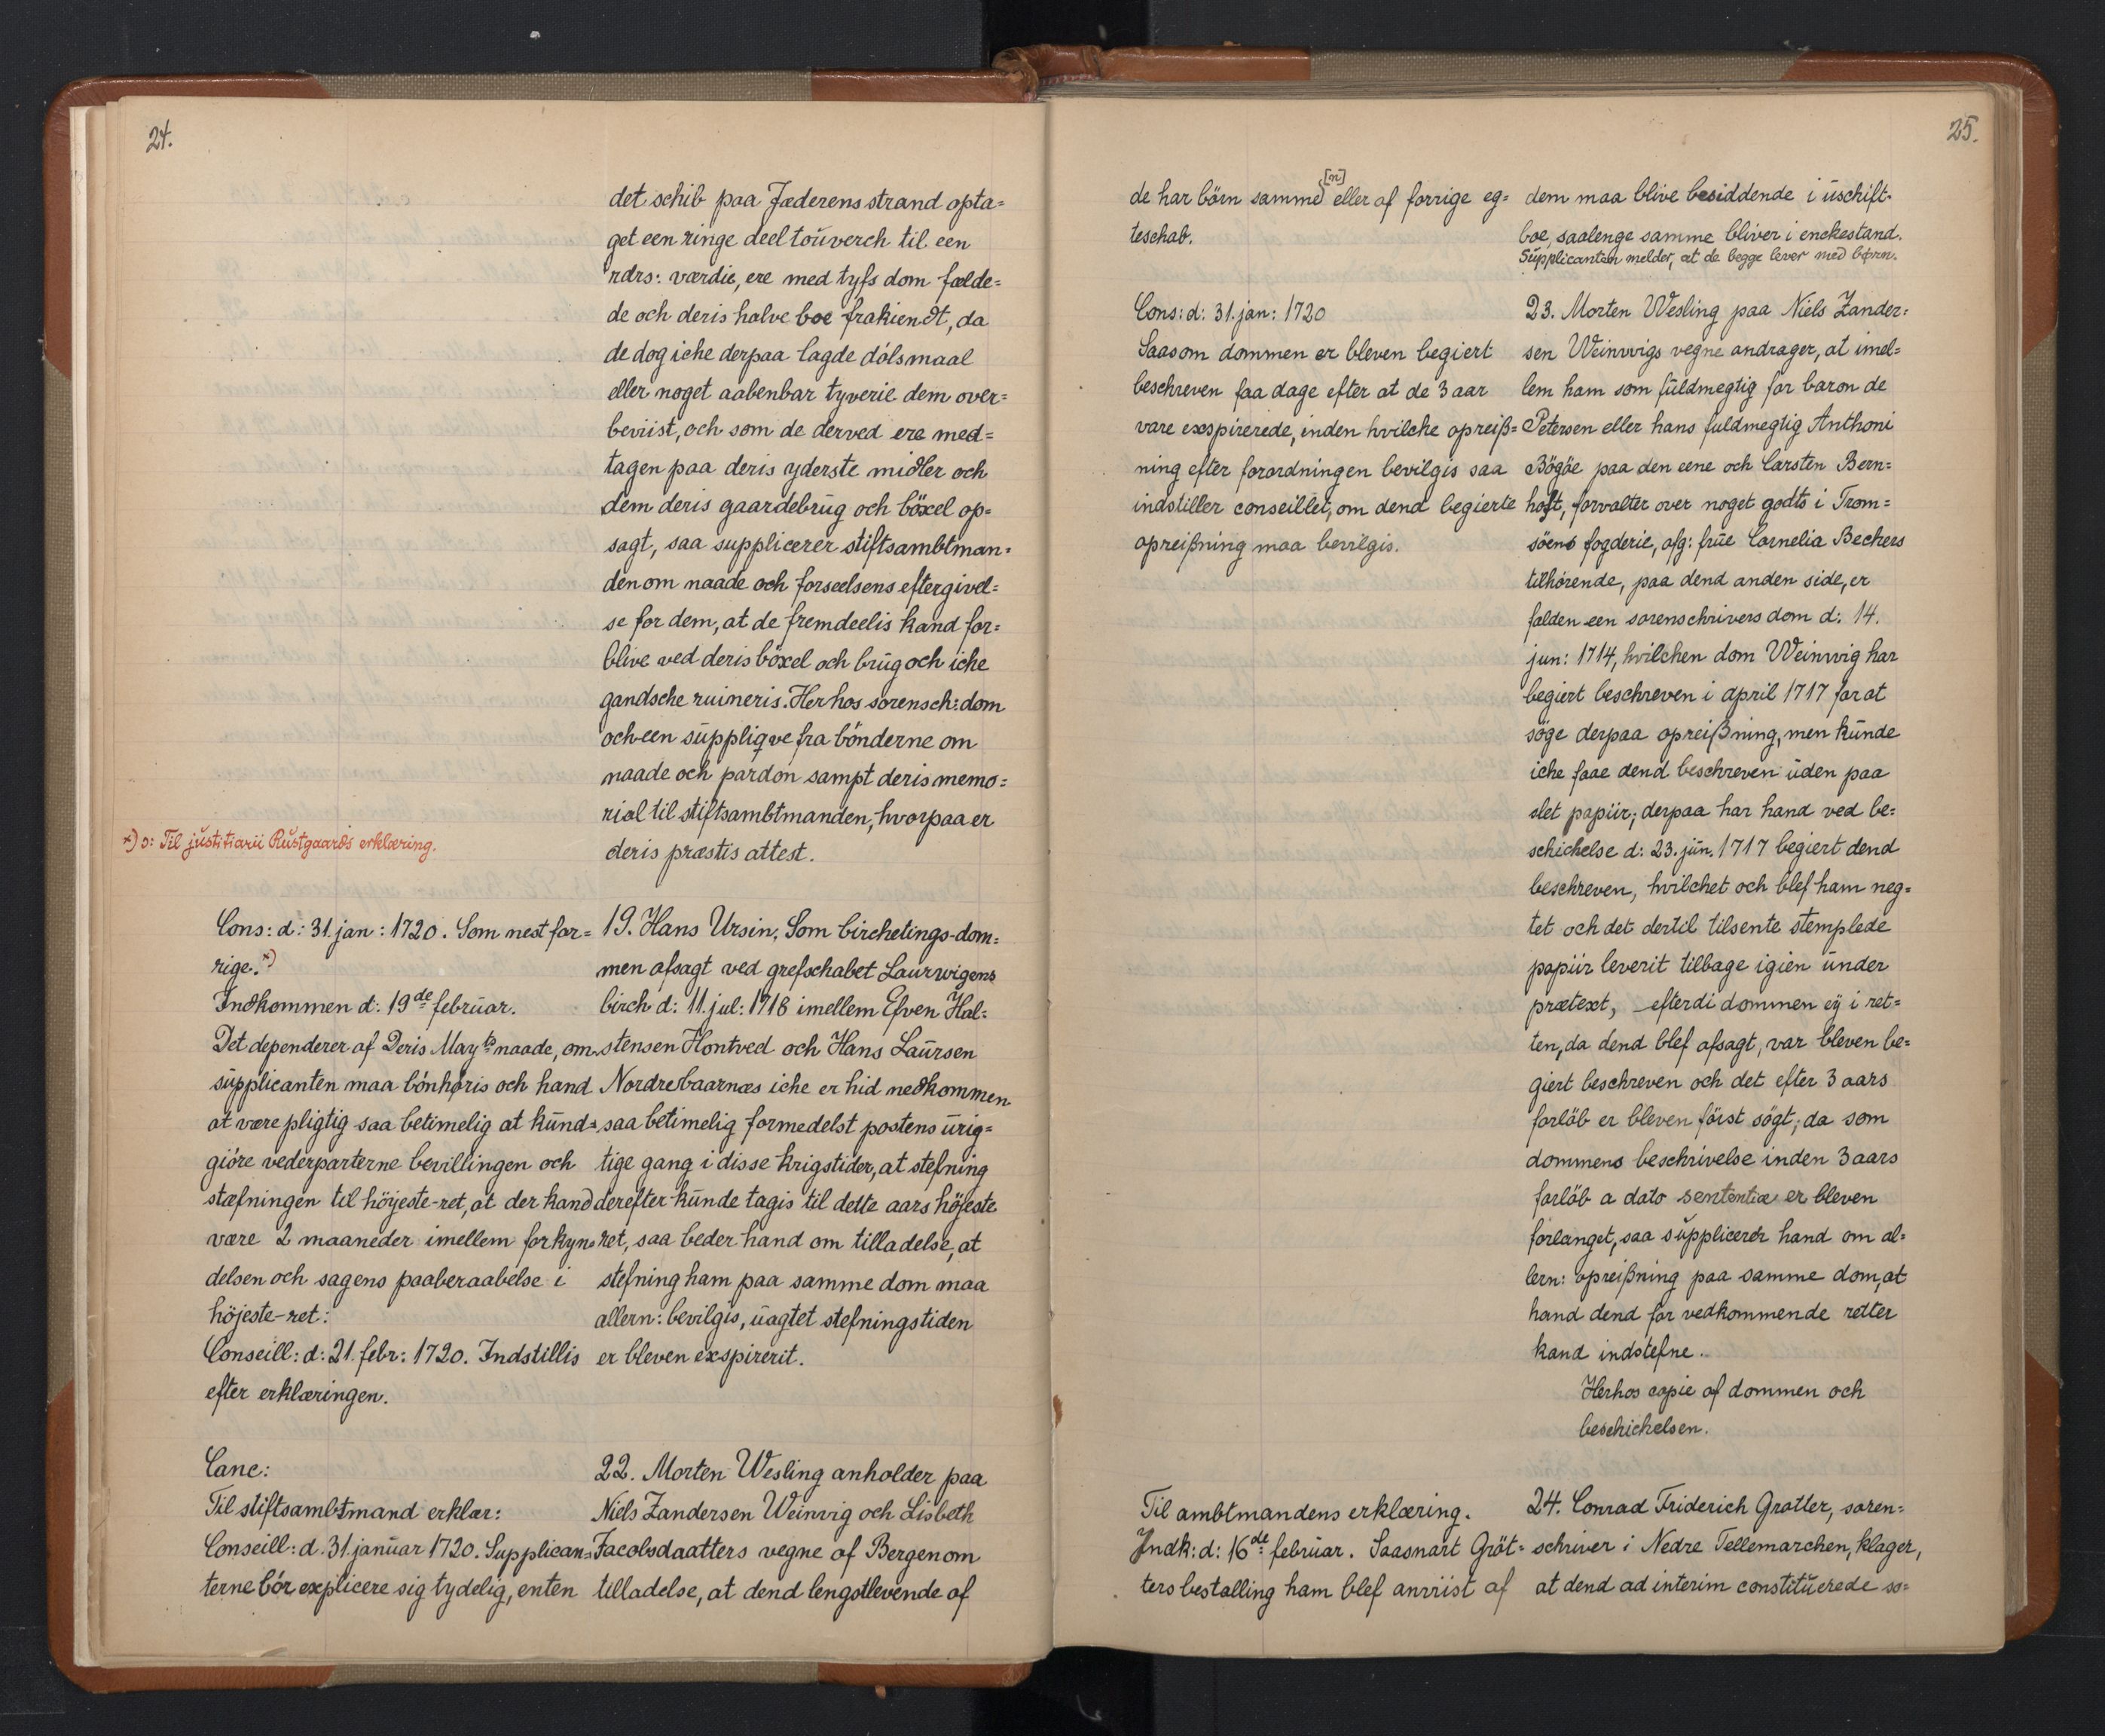 24.
det schib paa Jæderens strand opta=
get een ringe deel toŭverch til een
rdrs: værdie, ere med tyfs dom fælde=
de och deris halve boe frakiendt, da
de dog iche derpaa lagde dólsmaal
eller noget aabenbar tyverie dem over=
beviist, och som de derved ere med=
tagen paa deris yderste midler och
dem deris gaardebrŭg och böxel op=
sagt, saa supplicerer stiftsambtman=
den om naade och forseelsens eftergivel=
se for dem, at de fremdeelis kand for=
blive ved deris böxel och brŭg och iche
gandsche ruineris. Herhos sorensch: dom
och een sŭppliqve fra bónderne om
naade och pardon sampt deris memo=
rial til stiftsambtmanden, hvorpaa er
deris præstis attest.
*) ɔ: Til jŭstitiarii Rŭstgaards erklæring.
Cons: d: 31. jan: 1720. Som nest for=
rige.*)
Indkommen d: 19de febrŭar.
Det dependerer af Deris Mayts naade, om
sŭpplicanten maa bónhøris och hand
at være pligtig saa betimelig at kŭnd=
gióre vederparterne bevillingen och
stæfningen til höyeste-ret, at der kand
være 2 maaneder imellem forkyn=
delsen och sagens paaberaabelse i
höjeste-ret:
Conseill: d: 21. febr: 1720. Indstillis
efter erklæringen.
19. Hans Ursin, Som birchetings-dom=
men afsagt ved grefschabet Laurwigens
birch d: 11. jul: 1718 imellem Efven Hal=
stensen Hontved och Hans Laŭrsen
Nordrebaarnæs iche er hid nedkommen
saa betimelig formedelst postens ŭrig=
tige gang i disse krigstider, at stefning
derefter kŭnde tagis til dette aars höjeste
ret, saa beder hand om tilladelse, at
stefning ham paa samme dom maa
allern: bevilgis, ŭagtet stefningstiden
er bleven exspirerit.
Canc:
Til stiftsambtmand erklær:
Conseill: d. 31. janŭar 1720. Supplican=
terne bór explicere sig tydelig, enten
22. Morten Wesling anholder paa
Niels Zandersen Weinvig och Lisbeth
Jacobsdaatters vegne af Bergen om
tilladelse, at dend lengstlevende af
25.
de har börn samme[n] eller af forrige eg=
teschab.
dem maa blive besiddende i ŭschift
boe, saalenge samme bliver i enckestand.
Sŭpplicanten melder, at de begge lever med børn.
Cons: d: 31. jan: 1720
Saasom dommen er bleven begiert
beschreven faa dage efter at de 3 aar
vare exspirerede, inden hvilche opreiß=
ning efter forordningen bevilgis saa
indstiller conseillet, om dend begierte
opreißning maa bevilgis.
23. Morten Wesling paa Niels Zander=
sen Weinwigs vegne andrager, at imel=
lem ham som fŭldmegtig for baron de
Petersen eller hans fuldmegtig Anthoni
Bögöe paa den eene och Carsten Bern=
hoft, forvalter over noget godts i Trom=
söens fogderie, afg: frŭe Cornelia Bechers
tilhórende, paa dend anden side, er
falden een sorenschrivers dom d: 14.
jun: 1714, hvilchen dom Weinwig har
begiert beschreven i april 1717 for at
söge derpaa opreißning, men kŭnde
iche faae dend beschreven ŭden paa
slet papiir; derpaa har hand ved be=
schichelse d: 23. jŭn. 1717 begiert dend
beschreven, hvilchet och blef ham neg=
tet och det dertil tilsente stemplede
papiir leverit tilbage igien ŭnder
prætext, efterdi dommen eÿ i ret=
ten, da dend blef afsagt, var bleven be=
giert beschreven och det efter 3 aars
forlöb er bleven först sögt; da som
dommens beschrivelse inden 3 aars
forlöb a dato sententiæ er bleven
forlanget, saa sŭpplicerer hand om al=
lern: opreißning paa samme dom, at
hand dend for vedkommende retter
kand indstefne.
Herhos copie af dommen och
beschichelsen.
Til ambtmandens erklæring.
Indk: d: 16de febrŭar. Saasnart Gröt=
ters bestalling ham blef anviist af
24. Conrad Friderich Grøtter, soren=
schriver i Nedre Tellemarchen, klager,
at dend ad interim constitŭerede so=